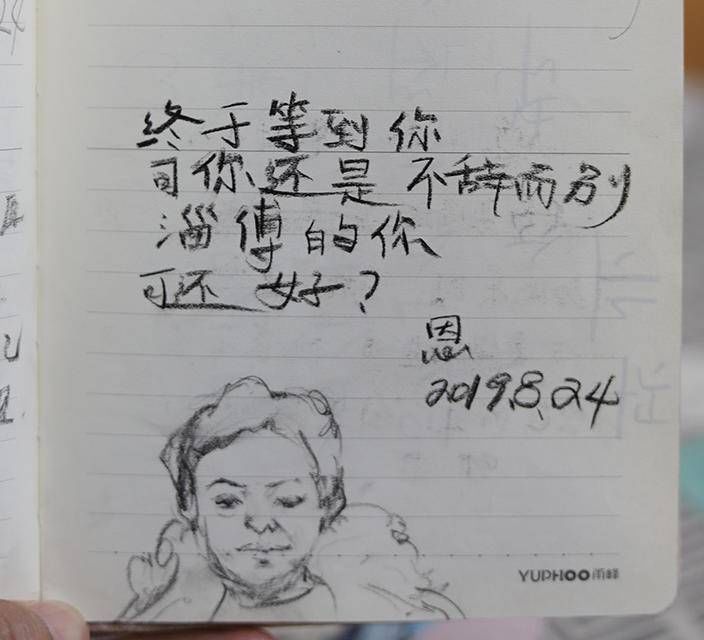 终于等到你
可你还是不辞而别
淄博的你
可还好?
恩
2019.8.24
YUPHOO 雨峰
24